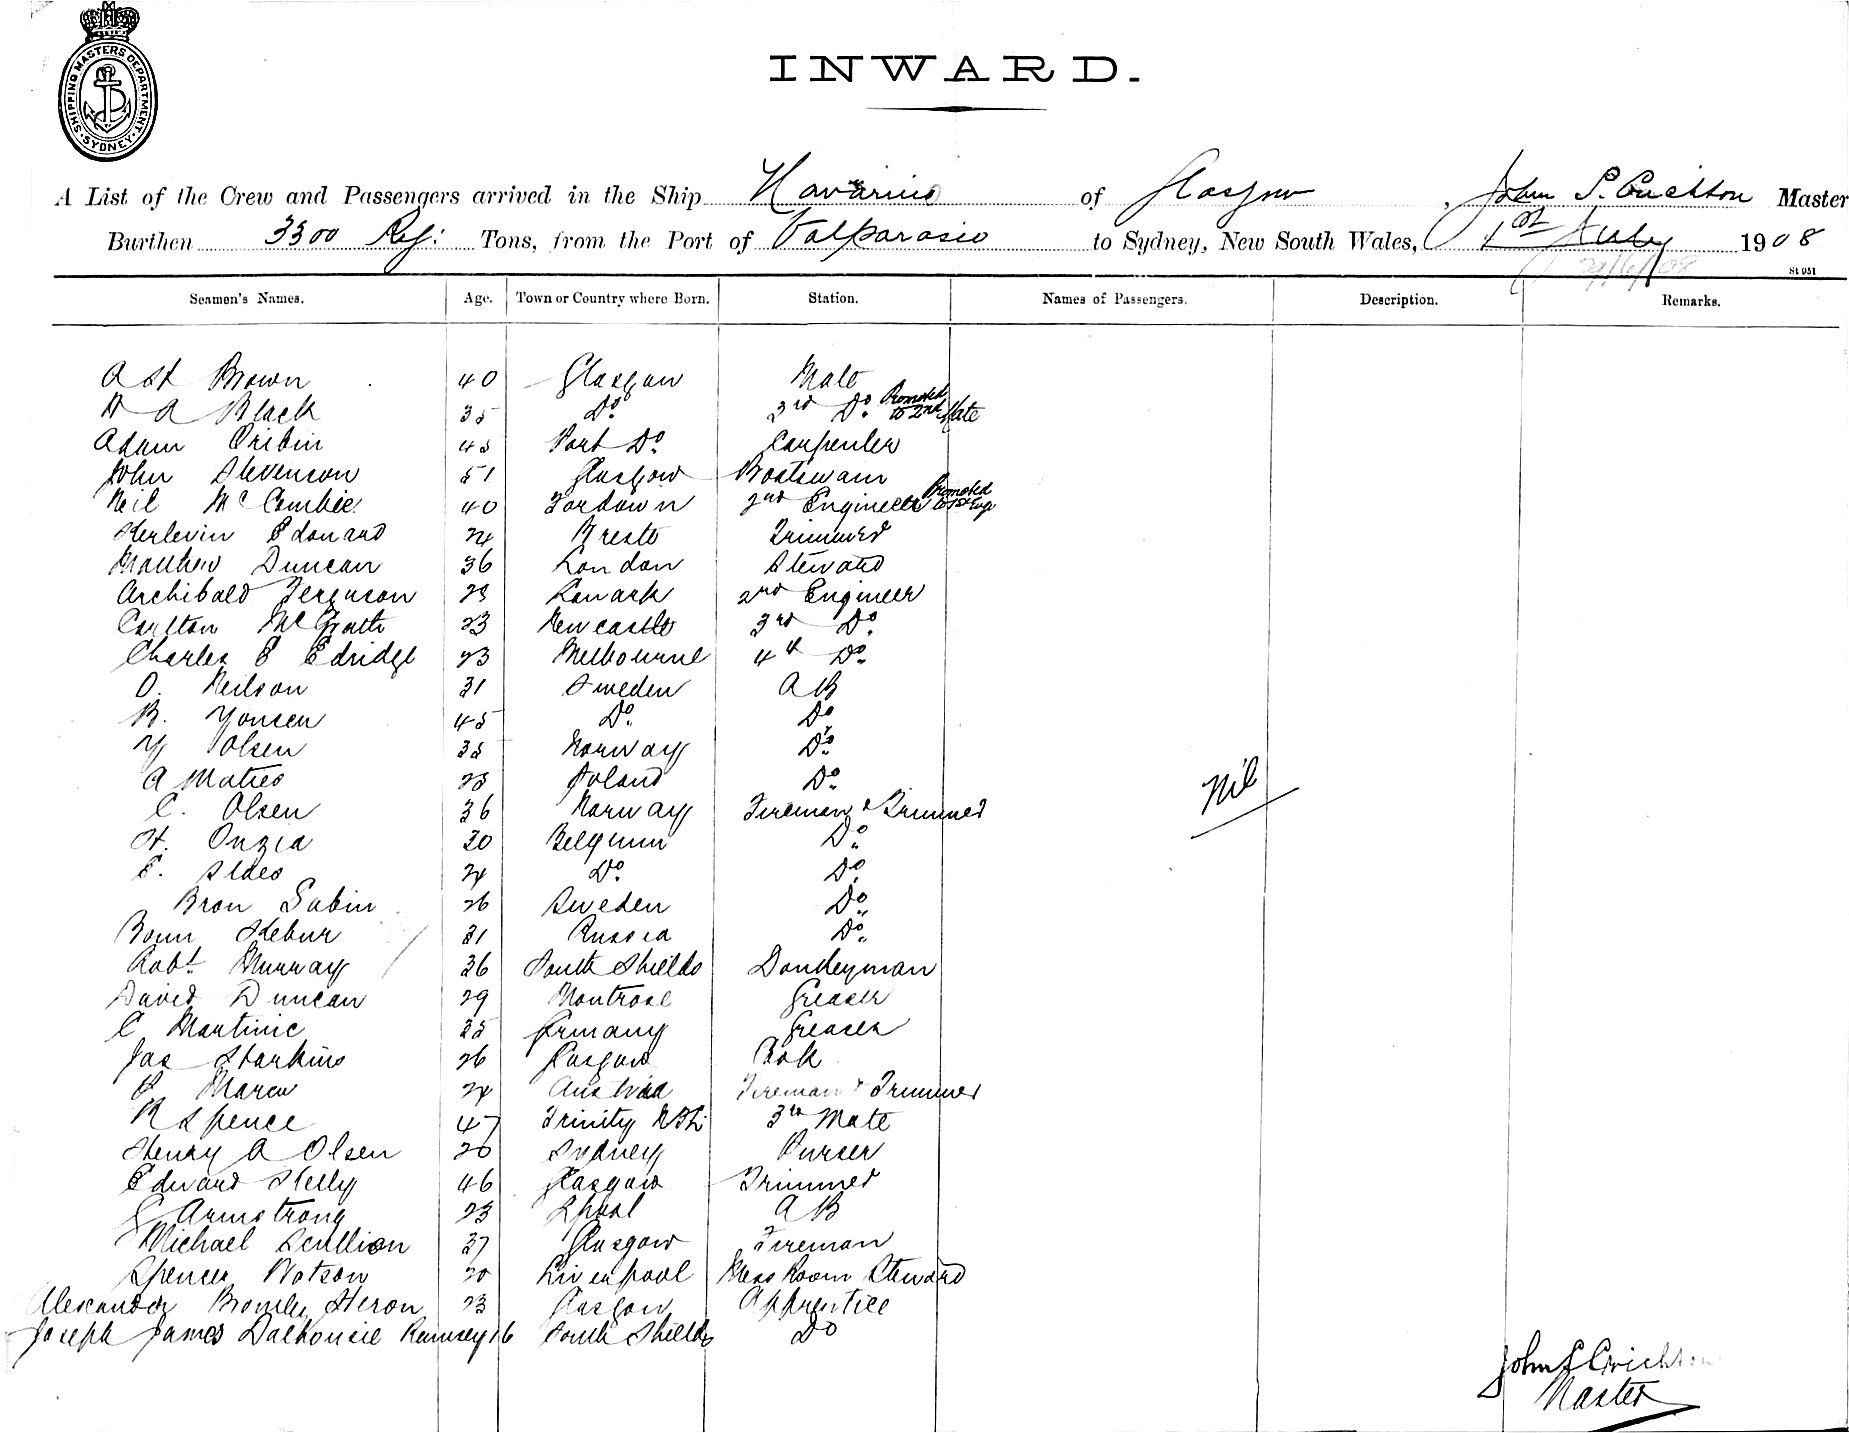 SHIPPING MASTERS DEPARTMENT · SYDNEY ·
INWARD.
A List of the Crew and Passengers arrived in the Ship Navarino of Glasgow, John S. Crichton Master
Burthen 3300 Reg: Tons, from the Port of Valparasio to Sydney, New South Wales, 1st July 1908
29/6/08
St 051
Seamen's Names. Age. Town or Country where Born. Station. Names of Passengers. Description. Remarks.
A St Brown 40 Glasgow Mate
D A Black 35 Do. 3rd Do. Promoted to 2nd Mate
Adam Cribin 45 Port Do. Carpenter
John Stevenson 51 Glasgow Boatswain
Neil McCombie 40 Fordown 2nd Engineer Promoted to 1st Eng
Kerlevin Edouard 24 Breste Trimmer
Matthew Duncan 36 London Steward
Archibald Ferguson 28 Lanark 2nd Engineer
Carlton McGrath 23 Newcastle 3rd Do.
Charles E Edridge 23 Melbourne 4th Do.
O. Neilson 31 Sweden AB
B. Yonsen 45 Do. Do
Y Olsen 35 Norway Do.
A Maties 25 Poland Do.
C. Olsen 36 Norway Fireman & Trimmer
Nil
H. Onzia 30 Belgium Do.
E. Sldes 24 Do. Do.
Bron Sabin 26 Sweden Do.
Bonn Hebur 31 Russia Do.
Robt. Murray 36 South Shields Donkeyman
David Duncan 29 Montrose Greaser
C Martinic 35 Germany Greaser
Jas Starkins 26 Glasgow Cook
Marcu 24 Austria Fireman & Trimmer
R Spence 47 Trinity 3rd Mate
Henry A Olsen 20 Sydney Purser
Edward Kelly 46 Glasgow Trimmer
G Armstrong 23 Lpool AB
Michael Scullion 37 Glasgow Fireman
Spencer Watson 20 Liverpool Mess Room Steward
Alexander Bromley Heron 23 Glasgow Apprentice
Joseph James Dalhousie Ramsey 16 South Shields Do
John S Crichton
Master